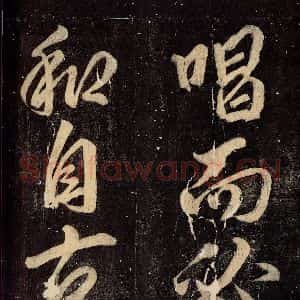 唱而必
和自古
Shufawang.CN